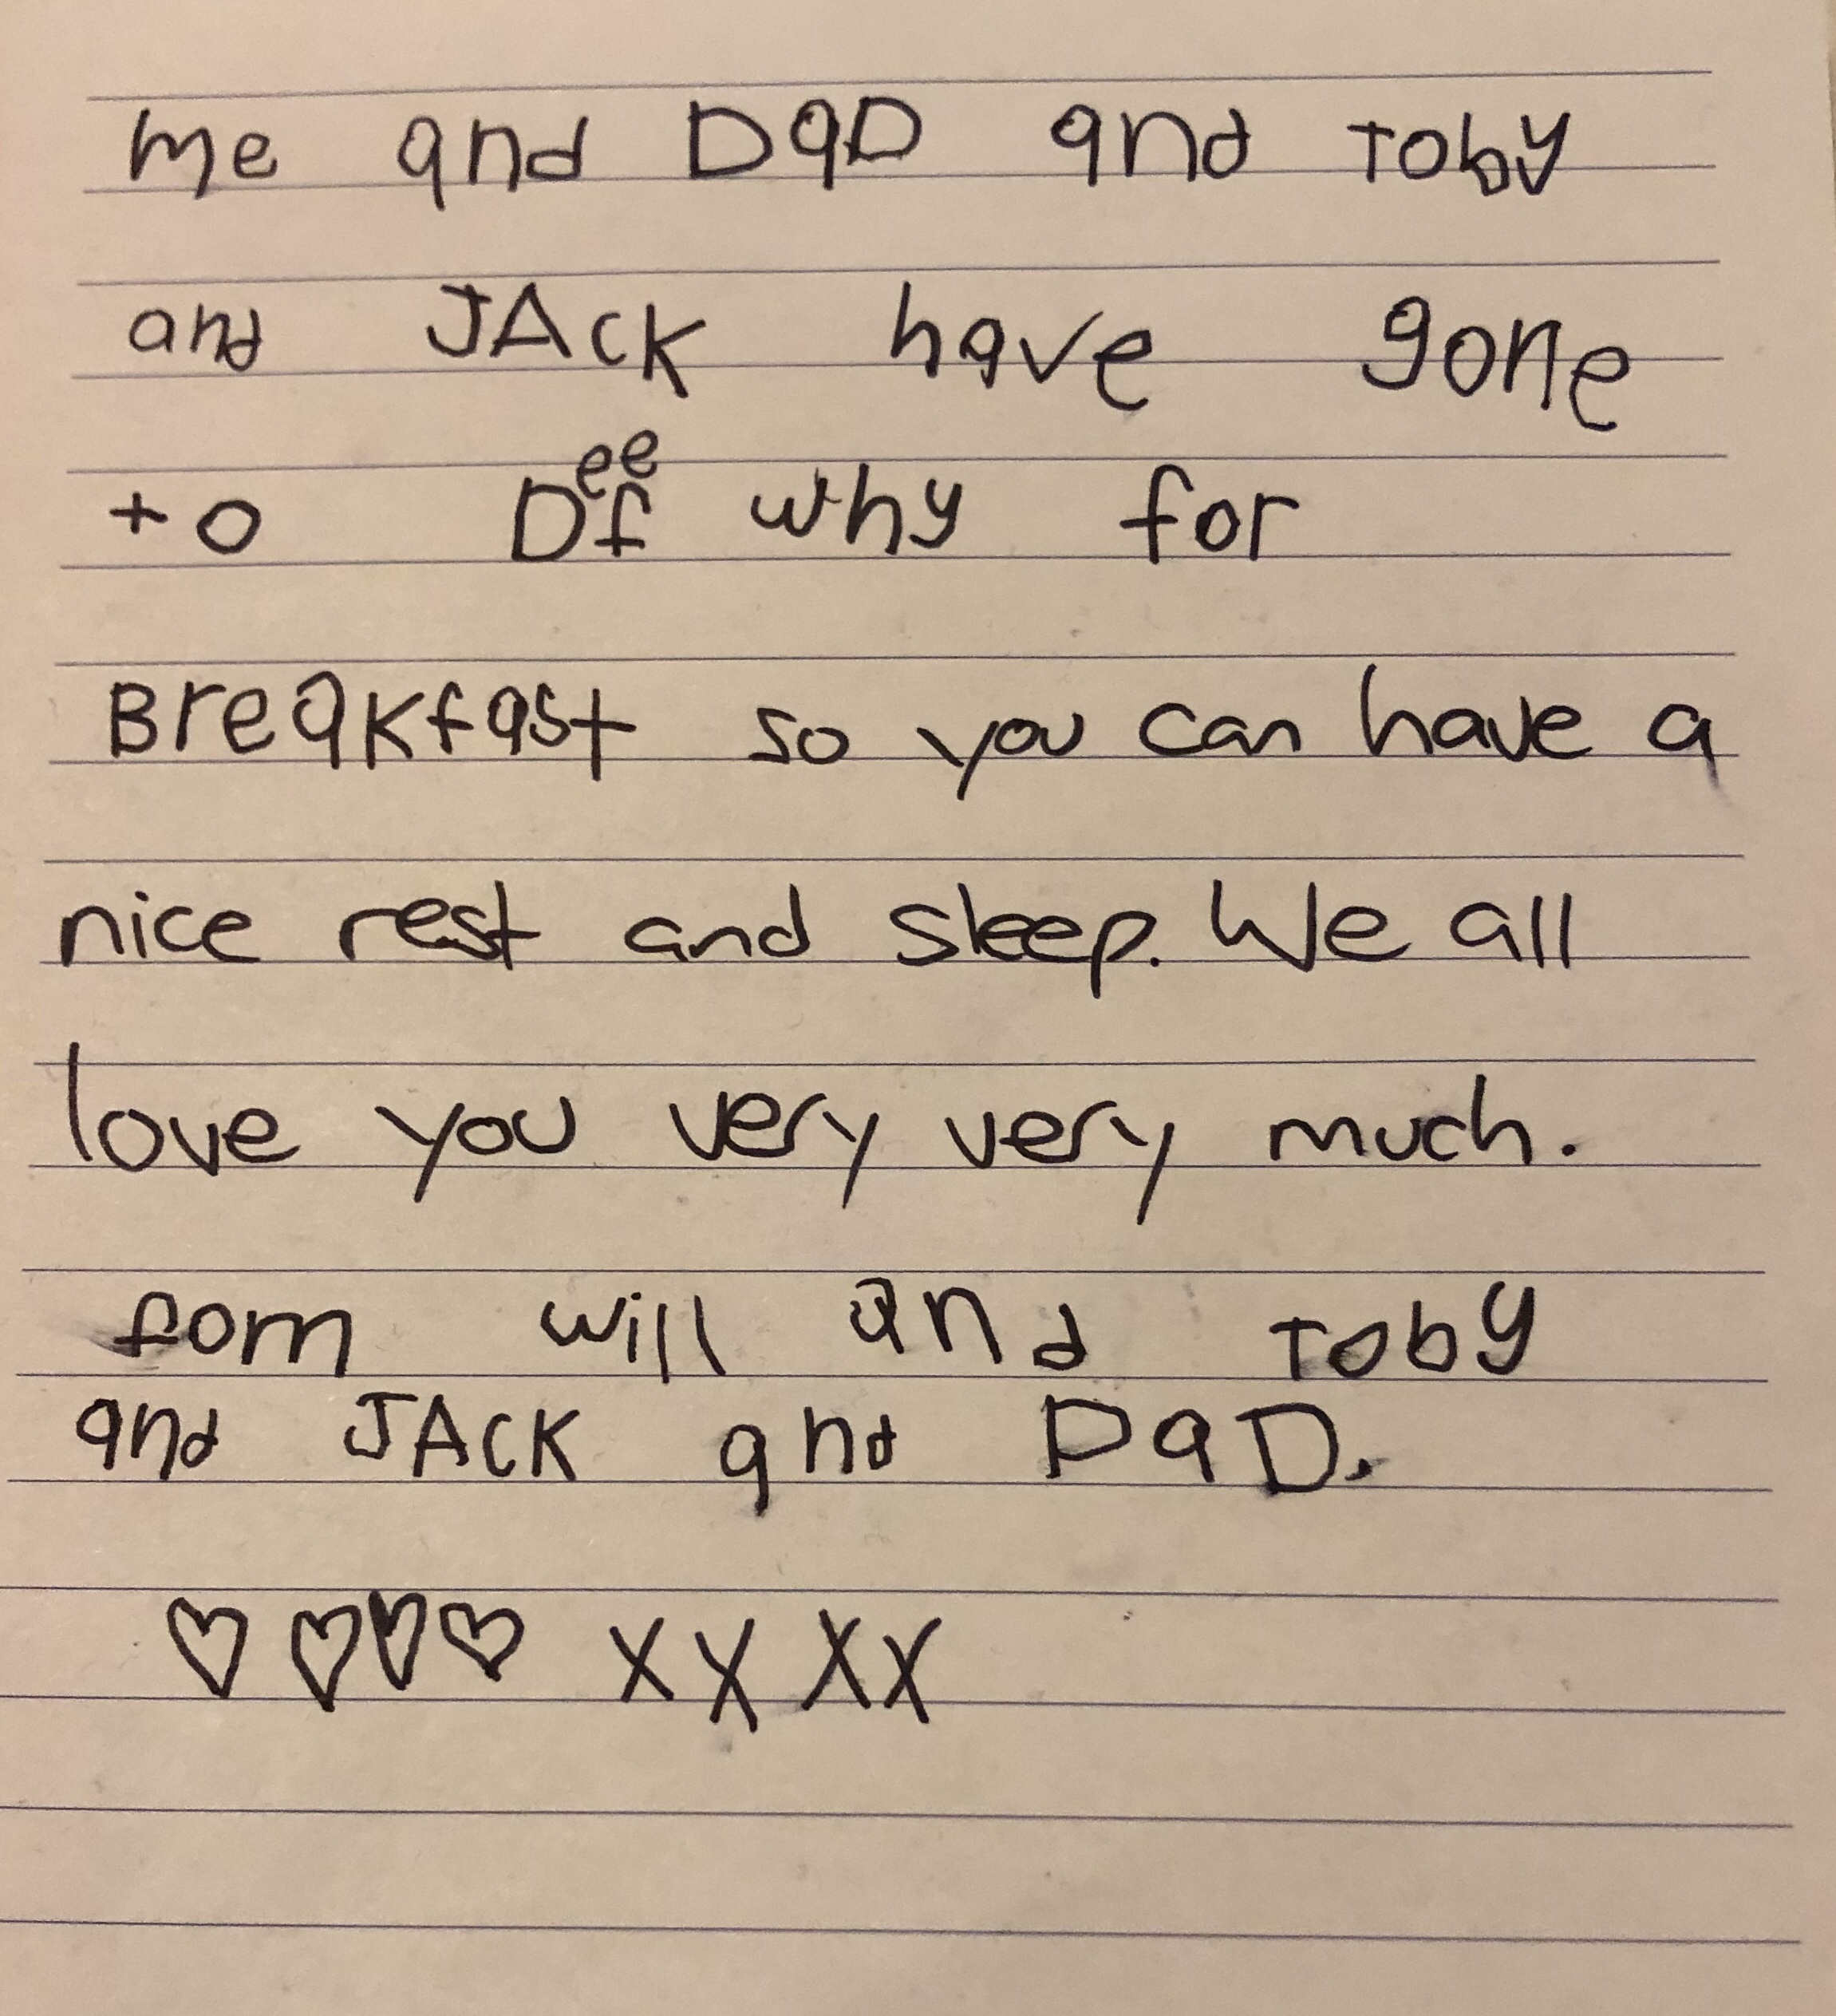 me and DaD and Toby
and JAcK have gone
to Dee why for
Breakfast so you can have a
nice rest and sleep. We all
love you very very much.
fom will and Toby
and JAcK and DaD.
♡ ♡ ♡ ♡ x x x x